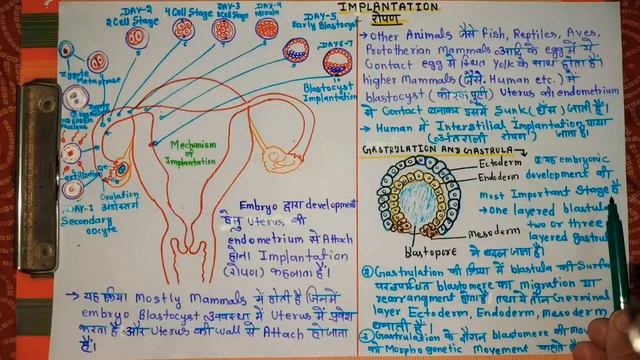 IMPLANTATION
रोपण
DAY-2
2 Cell Stage
4 Cell Stage
DAY-3
8 Cell Stage
DAY-4
Morula
DAY-5
Early Blastocyst
DAY 6-7
Blastocyst
Implantation
Zygote
Metaphase
Nucleus
Ovulation अंडोत्सर्ग
DAY-1
Secondary
oocyte
Mechanism
of
Implantation
Embryo द्वारा development
हेतु Uterus की
endometrium से Attach
होना Implantation
(रोपण) कहलाता है।
→ यह क्रिया Mostly Mammals में होती है जिनमें
embryo Blastocyst अवस्था में Uterus में प्रवेश
करता है और Uterus की wall से Attach हो जाता
है।
→ Other Animals जैसे Fish, Reptiles, Aves,
Prototherian Mammals आदि के egg में ये
Contact egg में स्थित Yolk के साथ होता है।
higher Mammals (जैसे: Human etc.) में
blastocyst Uterus की endometrium
से Contact बनाकर इसमें Sunk (धँस) जाती है।
→ Human में Interstitial Implantation पाया
(अंतराली रोपण) जाता है।
GASTRULATION AND GASTRULA:
Ectoderm
Endoderm
Mesoderm
Blastopore
① यह embryonic
development की
most Important Stage है
→ one layered blastula
two or three
layered gastrula
में बदल जाता है।
② Gastrulation की क्रिया में blastula की Surface
पर उपस्थित blastomere का migration या
rearrangment होता है तथा ये तीन Germinal
layer Ectoderm, Endoderm, mesoderm
बनाती है।
③ Gastrulation के दौरान blastomere की
को Morphogenetic Movement कहते है